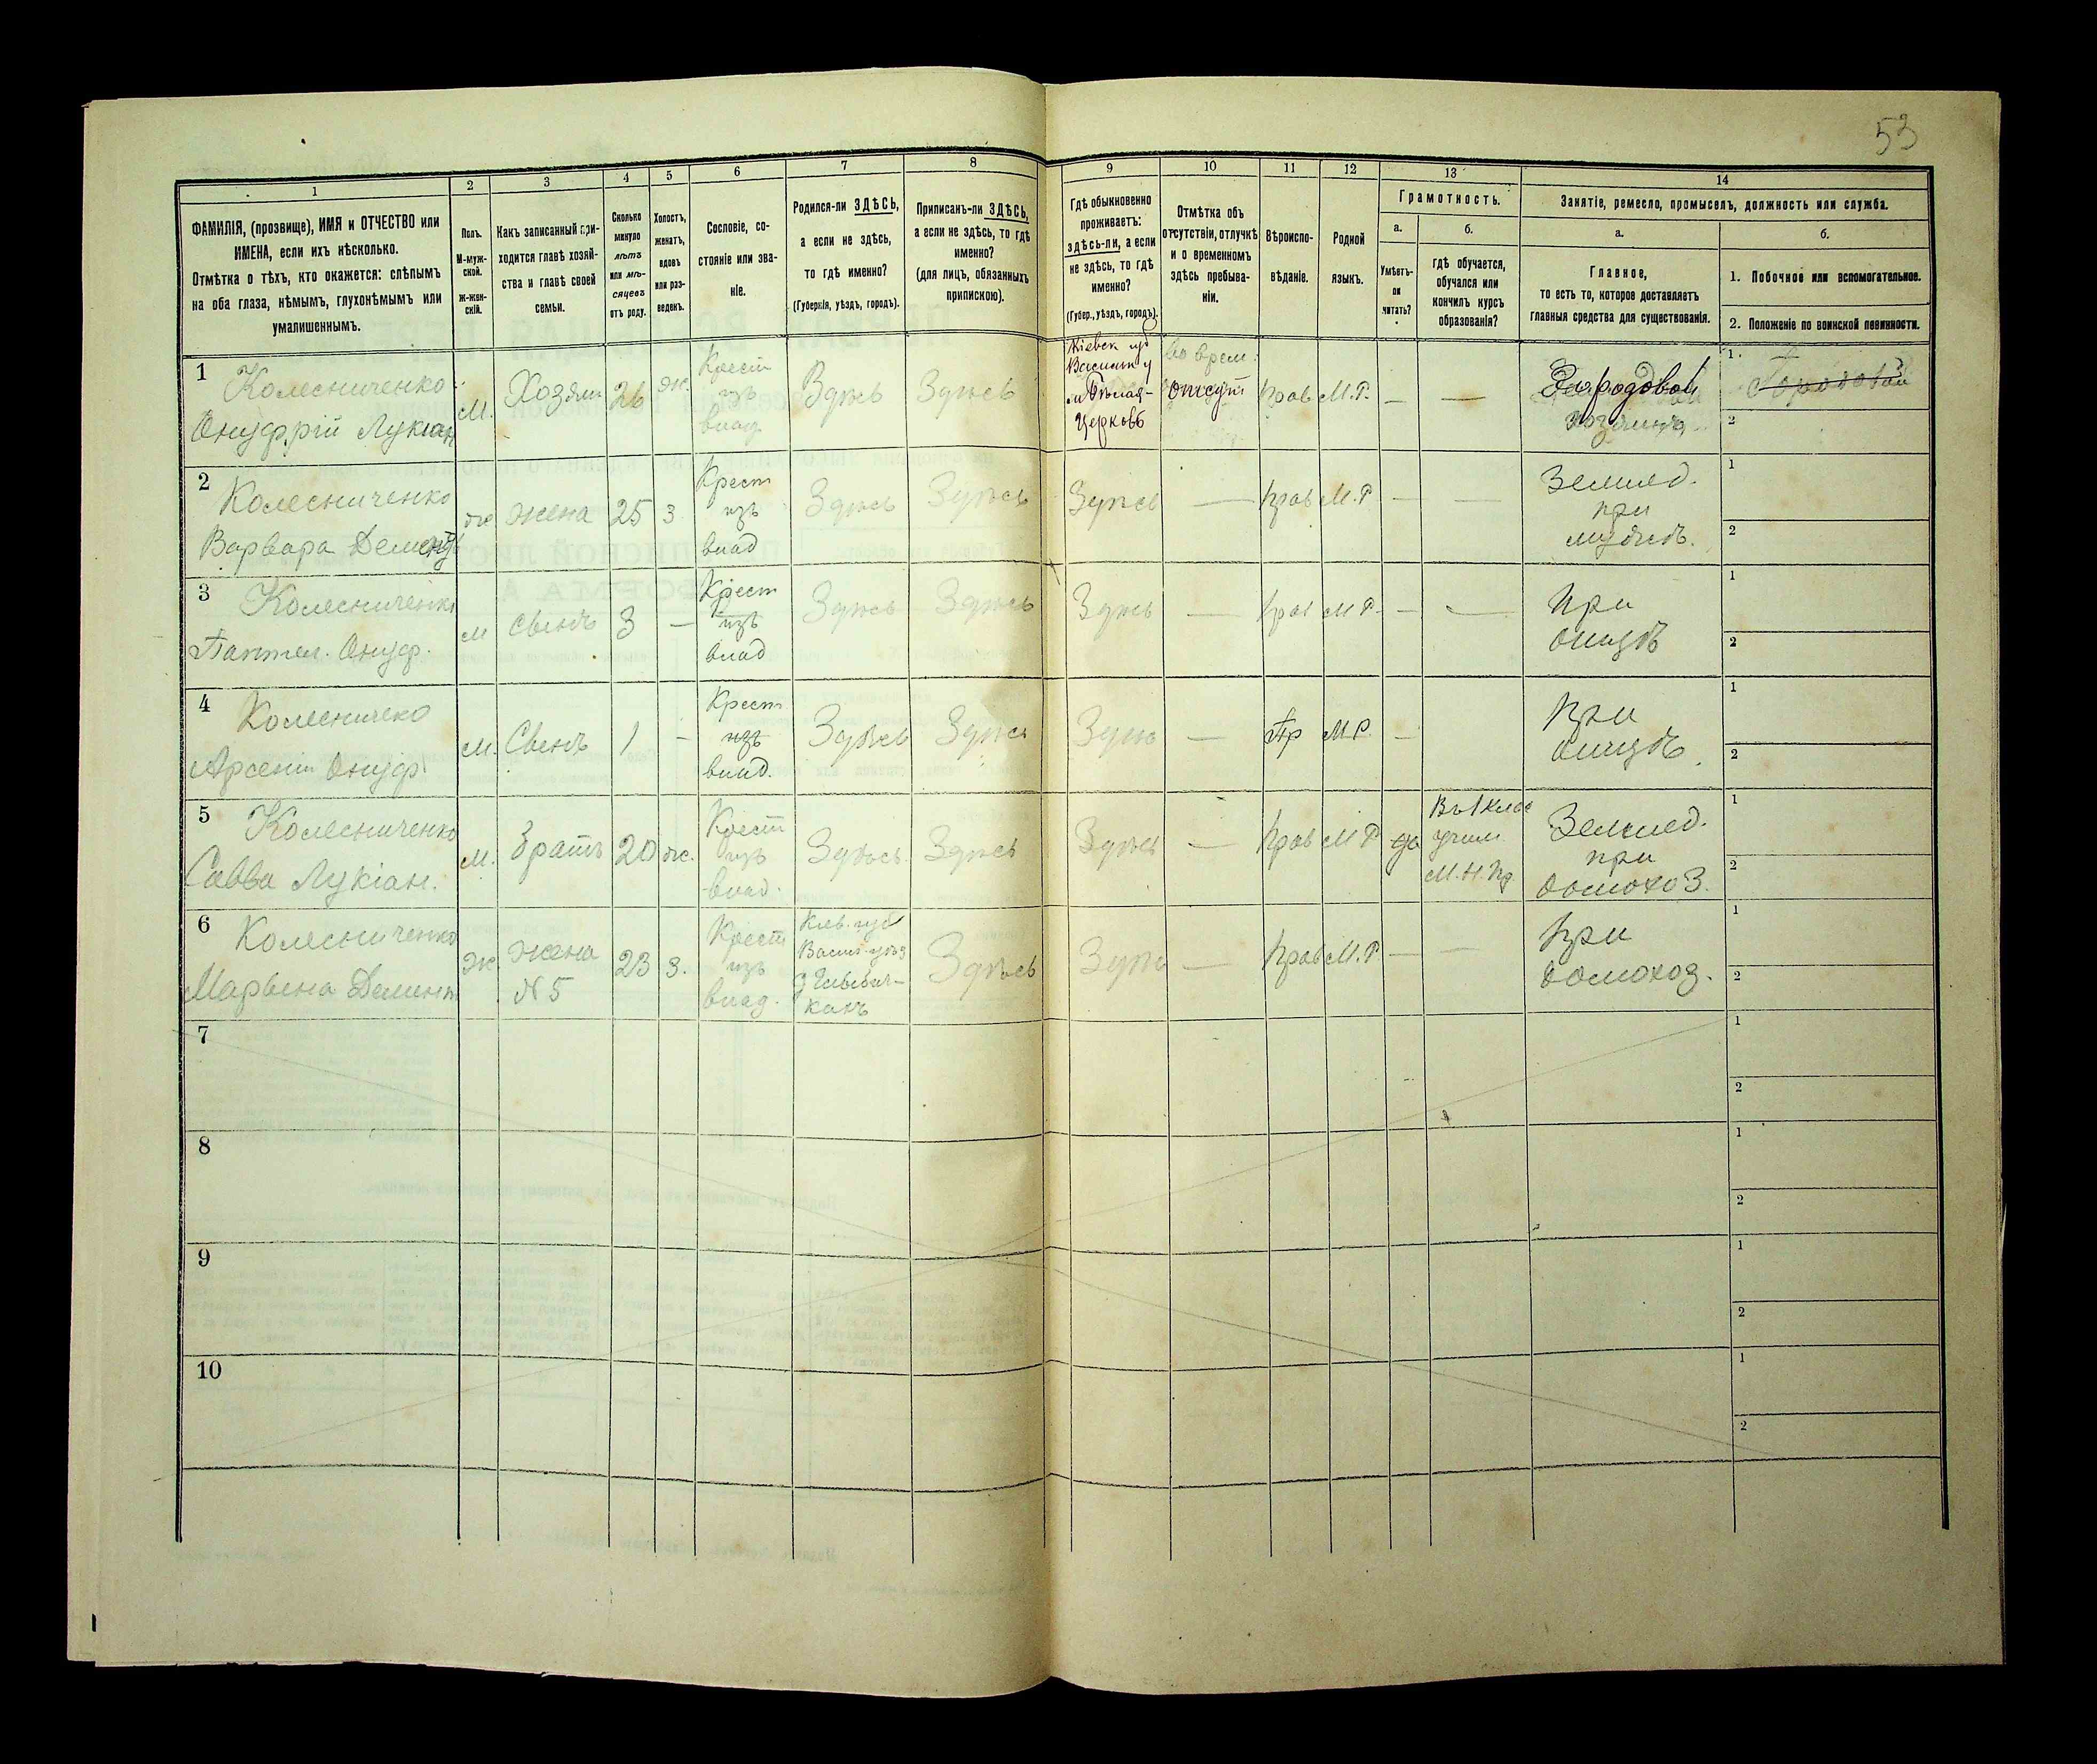 53
1
ФАМИЛІЯ, (прозвище), ИМЯ и ОТЧЕСТВО или
ИМЕНА, если ихъ нѣсколько.
Отмѣтка о тѣхъ, кто окажется: слѣпымъ
на оба глаза, нѣмымъ, глухонѣмымъ или
умалишеннымъ.
2
Полъ.
М-муж-
ской.
Ж-жен-
скій.
3
Какъ записанный при-
ходится главѣ хозяй-
ства и главѣ своей
семьи.
4
Сколько
минуло
лѣтъ
или мѣ-
сяцевъ
отъ роду.
5
Холостъ,
женатъ,
вдовъ
или раз-
веденъ.
6
Сословіе, со-
стояніе или зва-
ніе.
7
Родился-ли ЗДѢСЬ,
а если не здѣсь,
то гдѣ именно?
(Губернія, уѣздъ, городъ).
8
Приписанъ-ли ЗДѢСЬ,
а если не здѣсь, то гдѣ
именно?
(для лицъ, обязанныхъ
припискою).
9
Гдѣ обыкновенно
проживаетъ:
здѣсь-ли, а если
не здѣсь, то гдѣ
именно?
(Губер., уѣздъ, городъ).
10
Отмѣтка объ
отсутствіи, отлучкѣ
и о временномъ
здѣсь пребыва-
ніи.
11
Вѣроиспо-
вѣданіе.
12
Родной
языкъ.
13
Грамотность.
а.
Умѣетъ-
ли
читать?
б.
гдѣ обучается,
обучался или
кончилъ курсъ
образованія?
14
Занятіе, ремесло, промыселъ, должность или служба.
а.
Главное,
то есть то, которое доставляетъ
главныя средства для существованія.
б.
1. Побочное или вспомогательное.
2. Положеніе по воинской повинности.
1
Колесниченко
Онуфрій Лукіан
М.
Хозяин
26
ж.
Крест
изъ
влад
Здѣсь
Здѣсь
Кіевск губ
Васильк у
м Бѣлая-
Церковь
во врем.
отсут
Прав
М.Р.
—
—
Городовой
1.
Городовой
2
2
Колесниченко
Варвара Демент
ж
жена
25
з
Крест
изъ
влад
Здѣсь
Здѣсь
Здѣсь
—
Прав
М.Р
—
—
Землед.
при
мужѣ.
1
2
3
Колесниченко
Пантел. Онуф.
м
Сынъ
3
—
Крест
изъ
влад
Здѣсь
Здѣсь
Здѣсь
—
Прав
М.Р.
—
—
При
отцѣ
1
2
4
Колесничеко
Арсеній Онуф
м.
Сынъ
1
—
Крест
изъ
влад.
Здѣсь
Здѣсь
Здѣсь
—
Пр
М.Р.
—
При
отцѣ
1
2
5
Колесниченко
Савва Лукіан.
м.
братъ
20
ж.
Крест
изъ
влад.
Здѣсь.
Здѣсь
Здѣсь
—
Прав
М.Р
да
Въ 1 клас
учил.
М.Н.Пр.
Землед.
при
домохоз.
1
2
6
Колесниченко
Марьена Демент
ж.
жена
N 5
23
з.
Крест
изъ
влад.
Кіев. губ
Васил. уѣз
Здѣсь
Здѣсь
—
Прав
М.Р
—
—
При
домохоз.
1
2
7
1
2
8
1
2
9
1
2
10
1
2